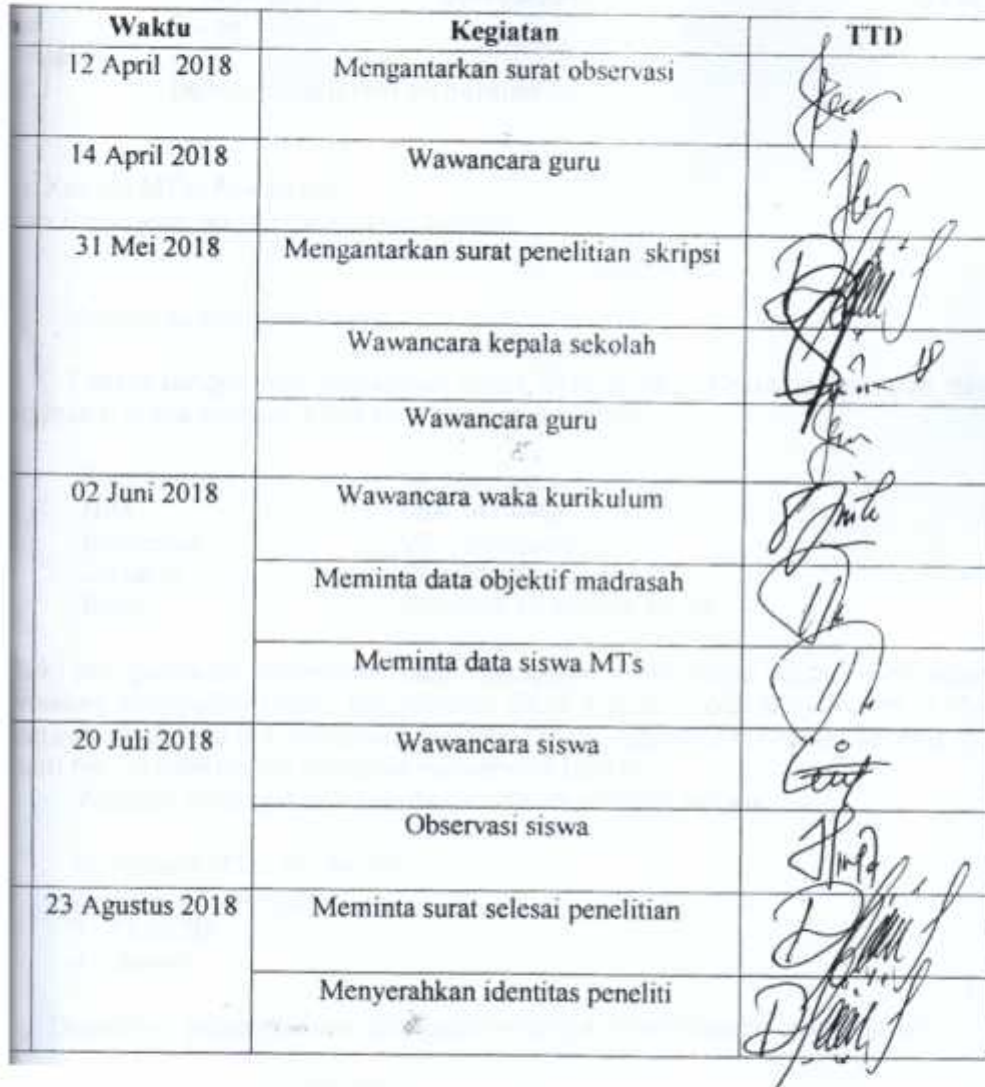 Waktu Kegiatan TTD
12 April 2018 Mengantarkan surat observasi
14 April 2018 Wawancara guru
31 Mei 2018 Mengantarkan surat penelitian skripsi
Wawancara kepala sekolah
Wawancara guru
02 Juni 2018 Wawancara waka kurikulum
Meminta data objektif madrasah
Meminta data siswa MTs
20 Juli 2018 Wawancara siswa
Observasi siswa
23 Agustus 2018 Meminta surat selesai penelitian
Menyerahkan identitas peneliti